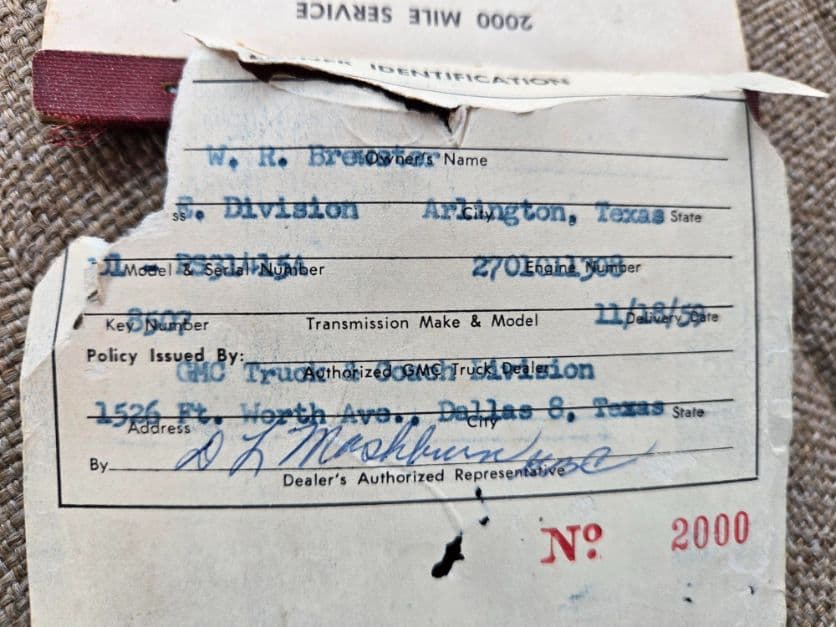 2000 MILE SERVICE
IDENTIFICATION
W. R. Brewster
Owner's Name
S. Division Arlington, Texas
ss City State
Model & Serial Number Engine Number
8507 11/18/59
Key Number Transmission Make & Model Delivery Date
Policy Issued By:
GMC Truck & Coach Division
Authorized GMC Truck Dealer
1526 Ft. Worth Ave., Dallas 8, Texas
Address City State
By D L Mashburn
Dealer's Authorized Representative
No 2000